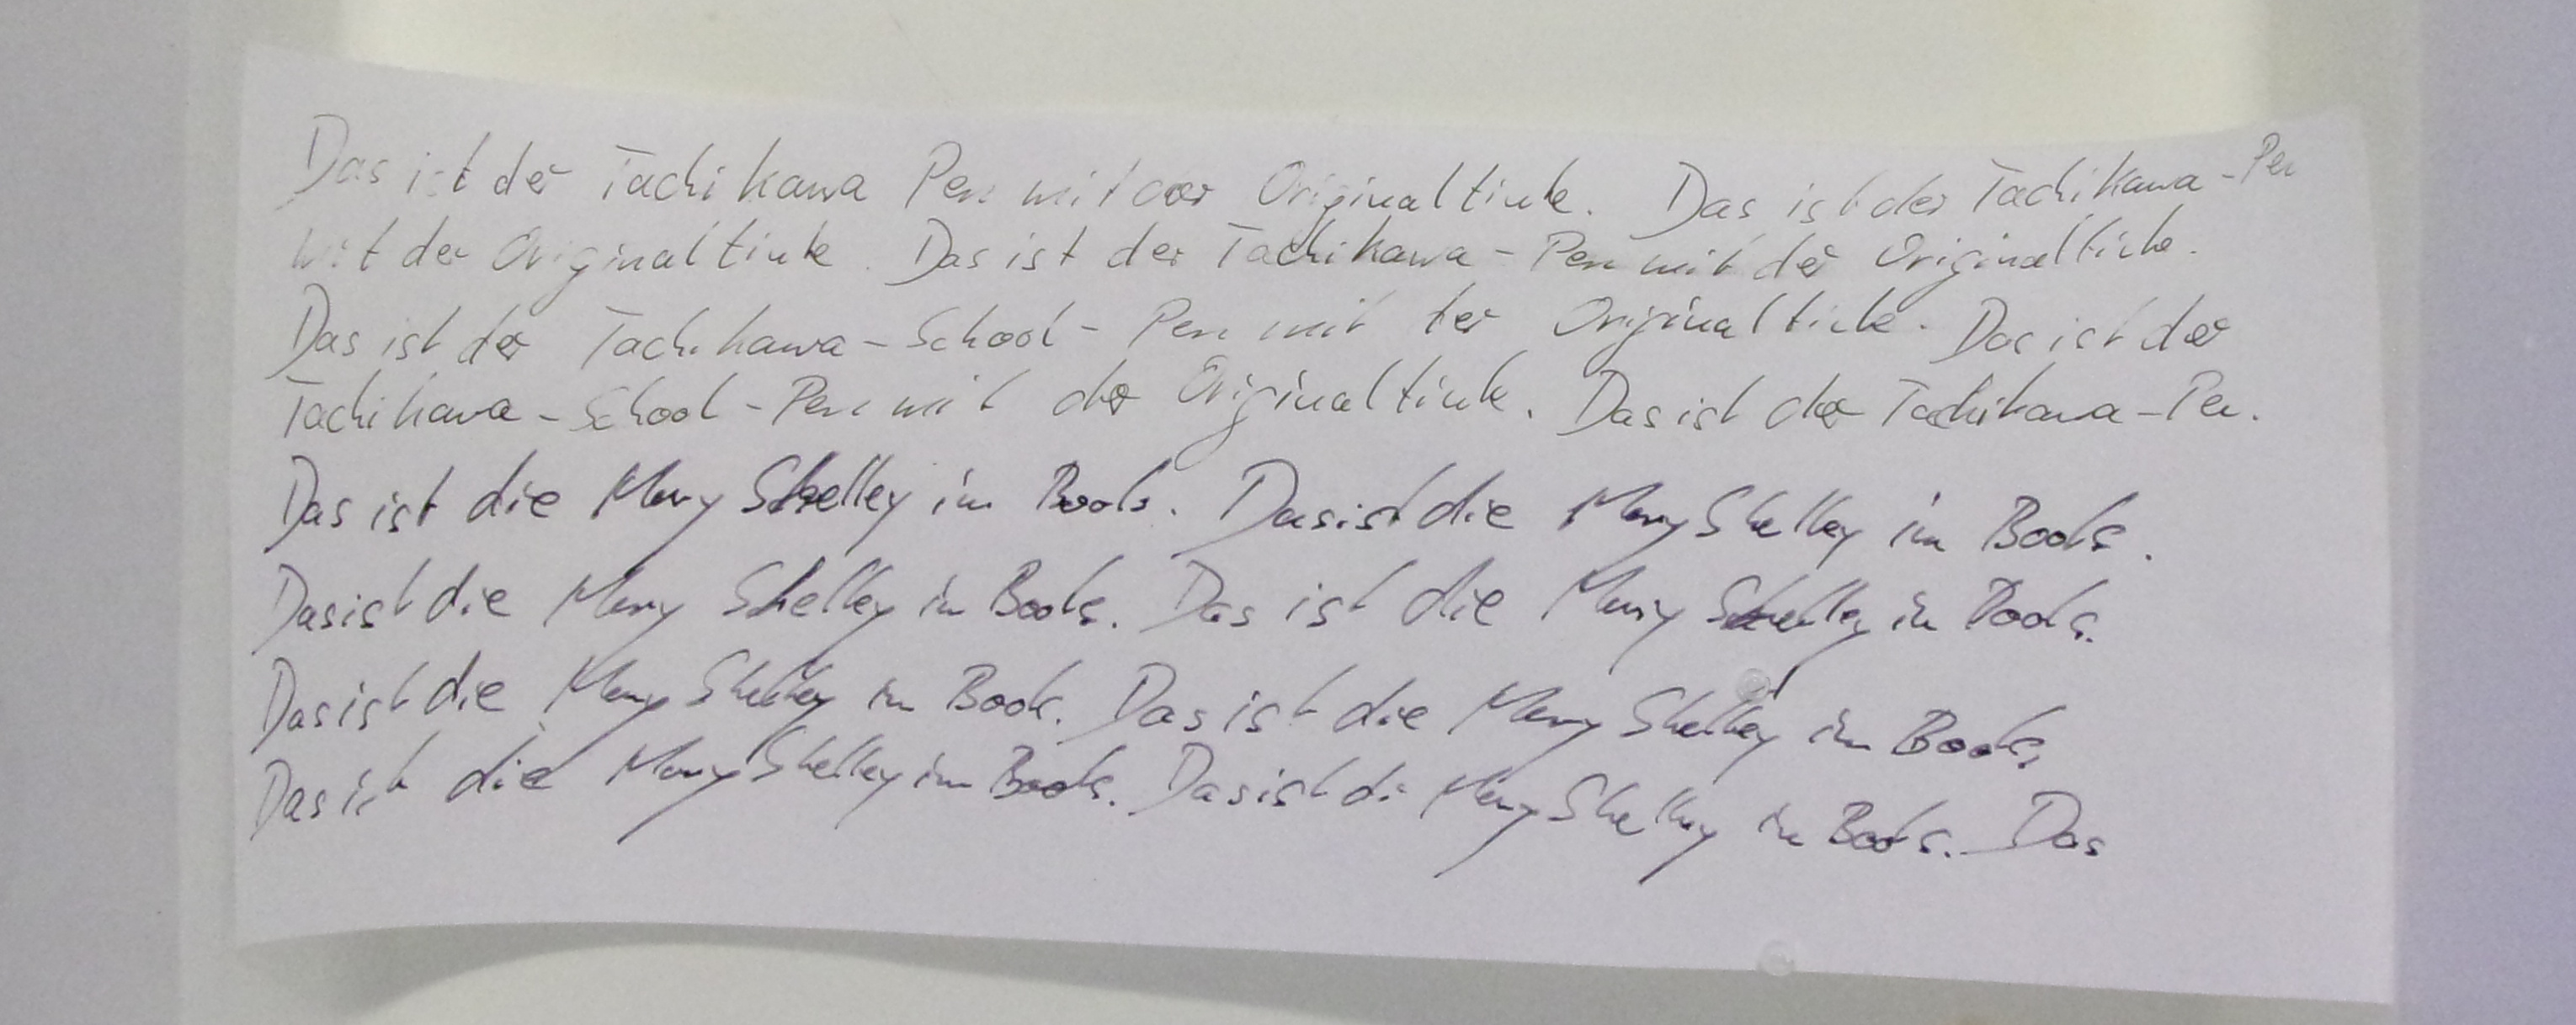 Das ist der Tachikawa Pen mit der Originaltinte. Das ist der Tachikawa-Pen
mit der Originaltinte. Das ist der Tachikawa-Pen mit der Originaltinte.
Das ist der Tachikawa-School-Pen mit der Originaltinte. Das ist der
Tachikawa-School-Pen mit der Originaltinte. Das ist der Tachikawa-Pen.
Das ist die Mary Shelley im Books. Das ist die Mary Shelley im Books.
Das ist die Mary Shelley im Books. Das ist die Mary Shelley im Books.
Das ist die Mary Shelley im Books. Das ist die Mary Shelley im Books
Das ist die Mary Shelley im Books. Das ist di Mary Shelley im Books. Das